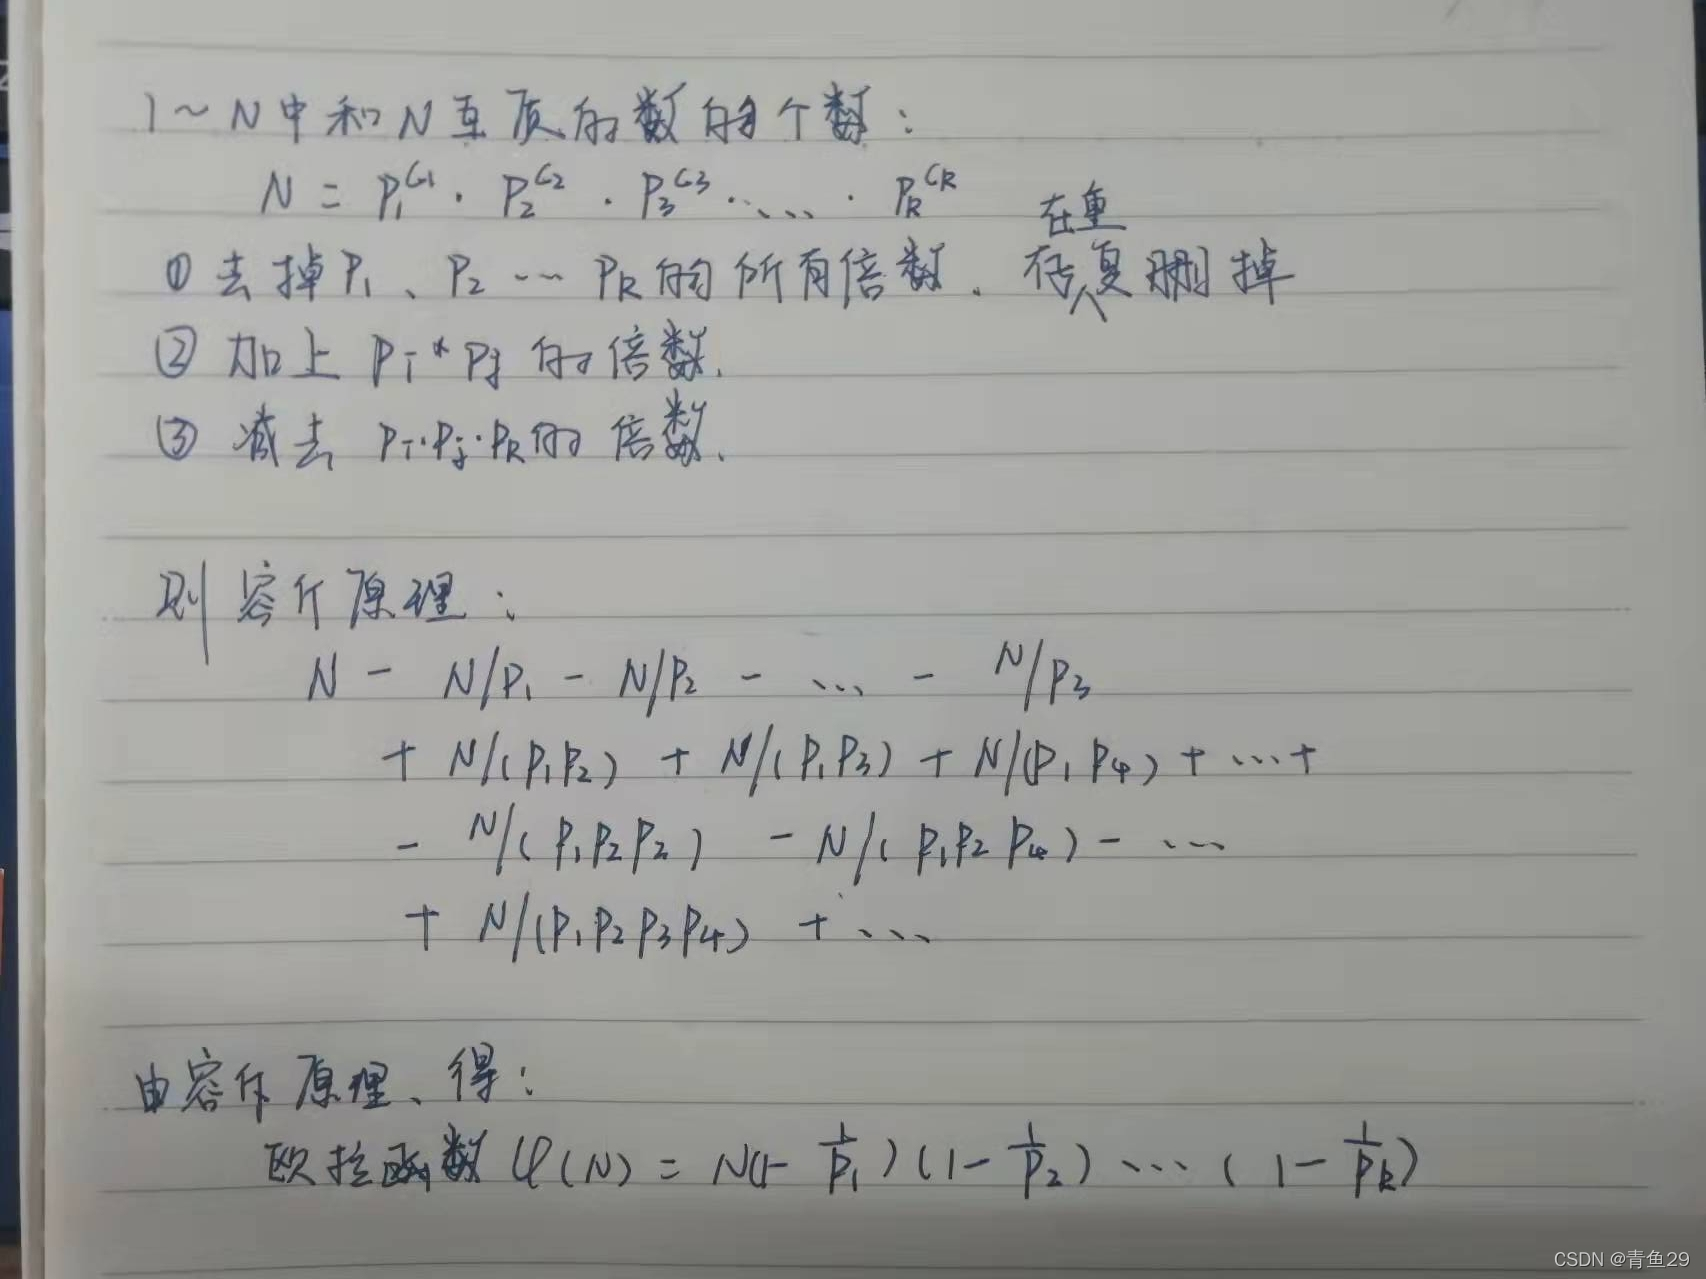 1~N中和N互质的数的个数:
N = P₁^C₁ · P₂^C₂ · P₃^C₃ · ... · Pk^Ck
在重
① 去掉P₁、P₂ … Pk的所有倍数. 存复删掉
② 加上 Pi * Pj 的倍数.
③ 减去 Pi·Pj·Pk的倍数.
则容斥原理:
N - N/P₁ - N/P₂ - ... - N/P₃
+ N/(P₁P₂) + N/(P₁P₃) + N/(P₁P₄) + ... +
- N/(P₁P₂P₂) - N/(P₁P₂P₄) - ...
+ N/(P₁P₂P₃P₄) + ...
由容斥原理、得:
欧拉函数 φ(N) = N(1-1/P₁)(1-1/P₂)...(1-1/Pk)
CSDN @青鱼29